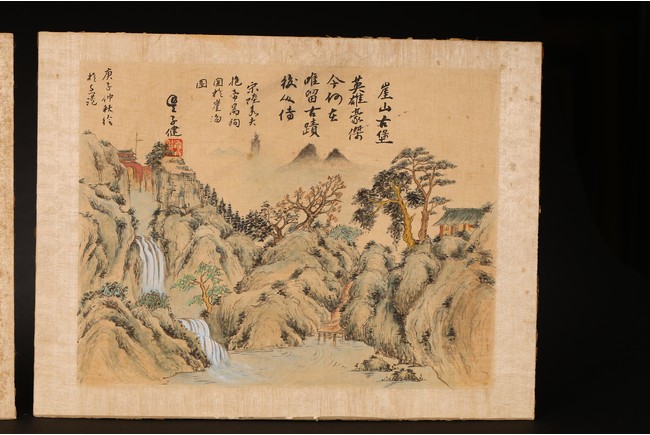 崖山古堡
英雄豪傑
今何在
唯留古蹟
後人傳
宋陸秀夫
抱帝昺殉
國於崖海
圖
子健
庚子仲秋